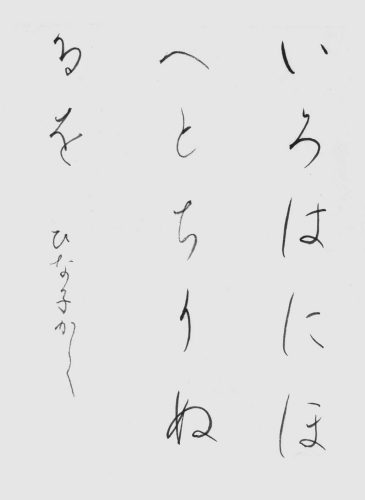 いろはにほ
へとちりぬ
るを
ひな子かく